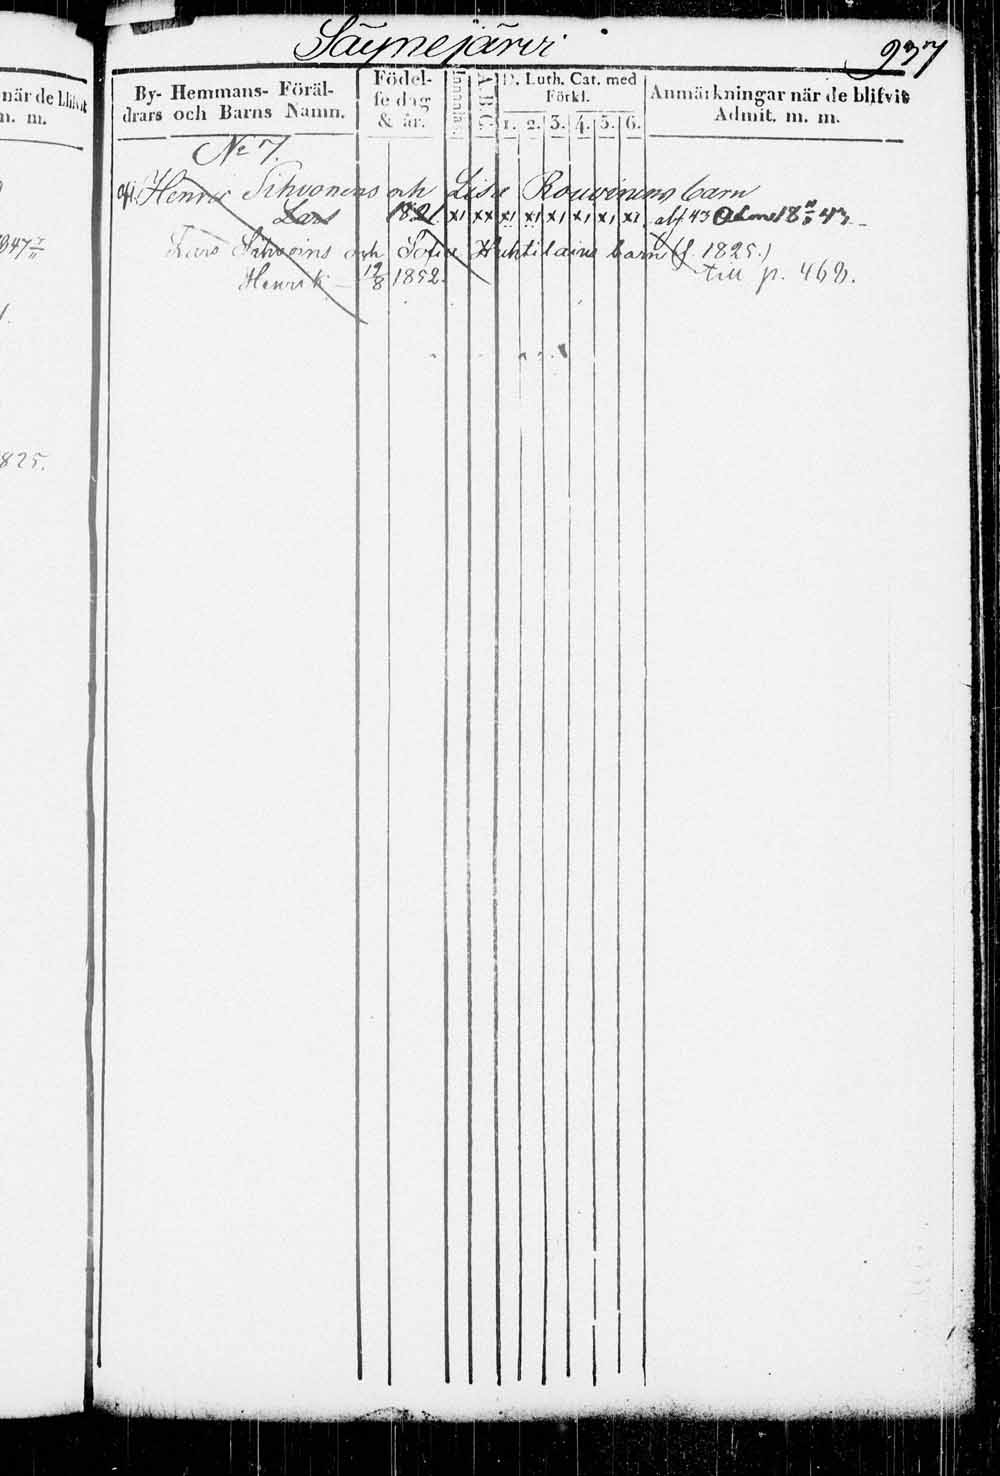 Säynejärvi
937
när de blifvit
n. m.
By- Hemmans- Föräl-
drars och Barns Namn.
Födel-
se dag
& år.
Innanläs.
A.B.C.
D. Luth. Cat. med
Förkl.
1. 2. 3. 4. 5. 6.
Anmärkningar när de blifvit
Admit. m. m.
No 7.
Henric Sihvonens och Lisa Rouvinens barn
Lars 1821 x1 xx x1 x1 x1 x1 x1 x1 abs 43
Lars Sihvoins och Sofia Huhtilains barn (f. 1825.)
Henrik 12/8 1852. till p. 468.
847
825.